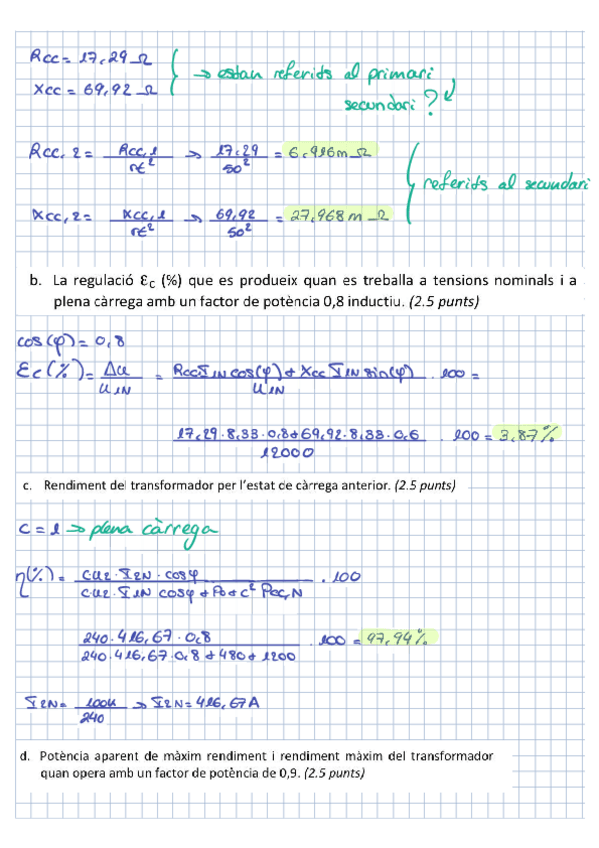 Rcc = 17,29 Ω
Xcc = 69,92 Ω
→ estan referits al primari
secundari?
Rcc,2 = Rcc,1 / rt² → 17,29 / 50² = 6,916 mΩ
Xcc,2 = Xcc,1 / rt² → 69,92 / 50² = 27,968 mΩ
referits al secundari
b. La regulació Ɛc (%) que es produeix quan es treballa a tensions nominals i a
plena càrrega amb un factor de potència 0,8 inductiu. (2.5 punts)
cos(φ) = 0,8
Ɛc(%) = Δu / U1N = Rcc I1N cos(φ) + Xcc I1N sin(φ) / U1N · 100 =
17,29 · 8,33 · 0,8 + 69,92 · 8,33 · 0,6 / 12000 · 100 = 3,87%
c. Rendiment del transformador per l'estat de càrrega anterior. (2.5 punts)
C = 1 → plena càrrega
η(%) = C U2 · I2N · cosφ / C · U2 · I1N cosφ + Po + c² Pcc,N · 100
240 · 416,67 · 0,8 / 240 · 416,67 · 0,8 + 480 + 1200 · 100 = 97,94%
I2N = 100k / 240 → I2N = 416,67A
d. Potència aparent de màxim rendiment i rendiment màxim del transformador
quan opera amb un factor de potència de 0,9. (2.5 punts)